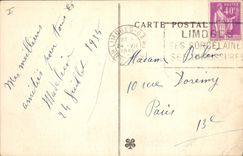 Mes meilleures
amitiés pour tous
Madeleine
24 juillet 1935
CARTE POSTALE
LIMOGES
SES PORCELAINES
40c
Madame
10 rue Doremy
Paris
13e